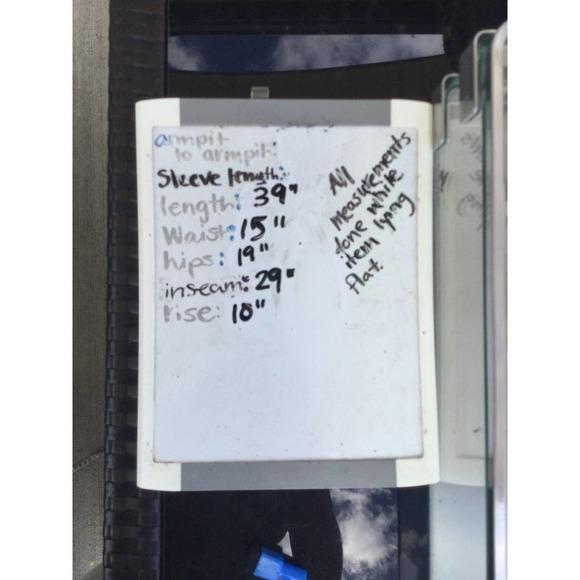 armpit
to armpit:
Sleeve length:
length: 39"
Waist: 15"
hips: 19"
inseam: 29"
rise: 10"
All
Measurements
done while
item lying
flat.